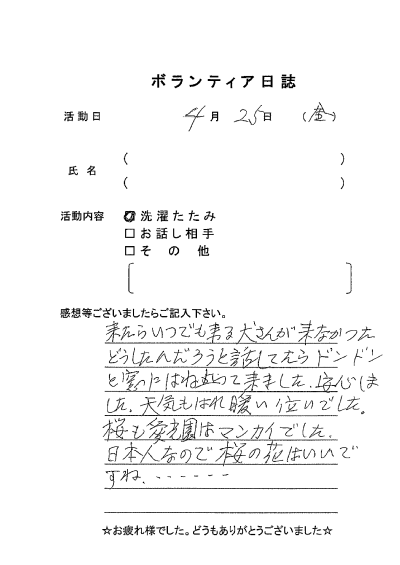 ボランティア日誌
活動日 4月 25日 (金)
氏名 ( )
( )
活動内容 ☑洗濯たたみ
□お話し相手
□その他
[ ]
感想等ございましたらご記入下さい。
来たらいつでも来る犬さんが来なかった
どうしたんだろうと話してたらドンドン
と窓にはね って来ました。安心しま
した。天気もはれ暖い いでした。
桜も愛光園はマンカイでした。
日本人なので桜の花はいいで
すね。------
☆お疲れ様でした。どうもありがとうございました☆